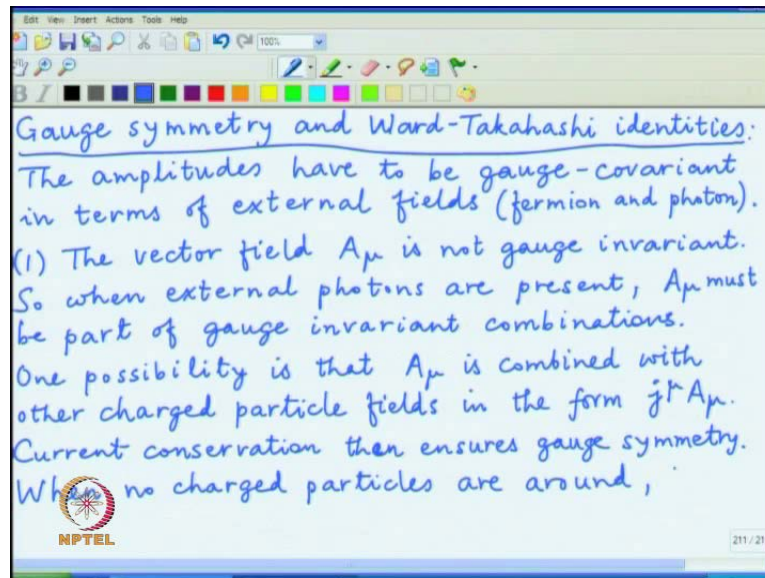 Edit View Insert Actions Tools Help
100%
B I
Gauge symmetry and Ward-Takahashi identities:
The amplitudes have to be gauge-covariant
in terms of external fields (fermion and photon).
(1) The vector field Aμ is not gauge invariant.
So when external photons are present, Aμ must
be part of gauge invariant combinations.
One possibility is that Aμ is combined with
other charged particle fields in the form j^μ Aμ.
Current conservation then ensures gauge symmetry.
When no charged particles are around,
NPTEL
211 / 21